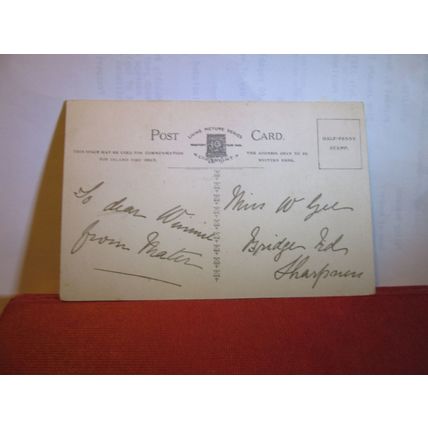 POST CARD.
LIVING PICTURE SERIES
THIS SPACE MAY BE USED FOR COMMUNICATION
FOR INLAND USE ONLY.
THE ADDRESS ONLY TO BE
WRITTEN HERE.
HALF-PENNY
STAMP.
To dear Winnie
from Mater
Miss W Gee
Bridge Rd
Sharpness